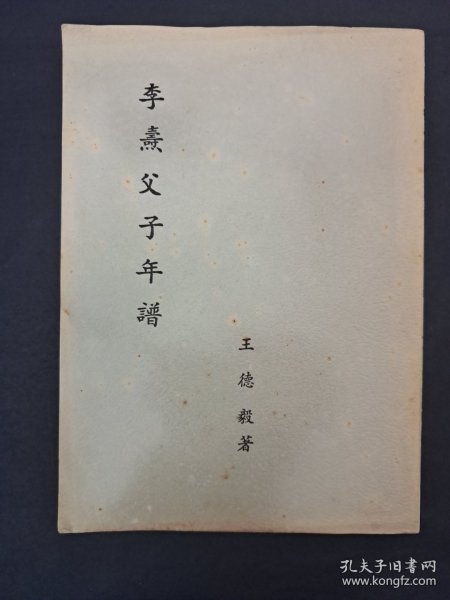 李燾父子年譜
王德毅著
孔夫子旧书网
www.kongfz.com